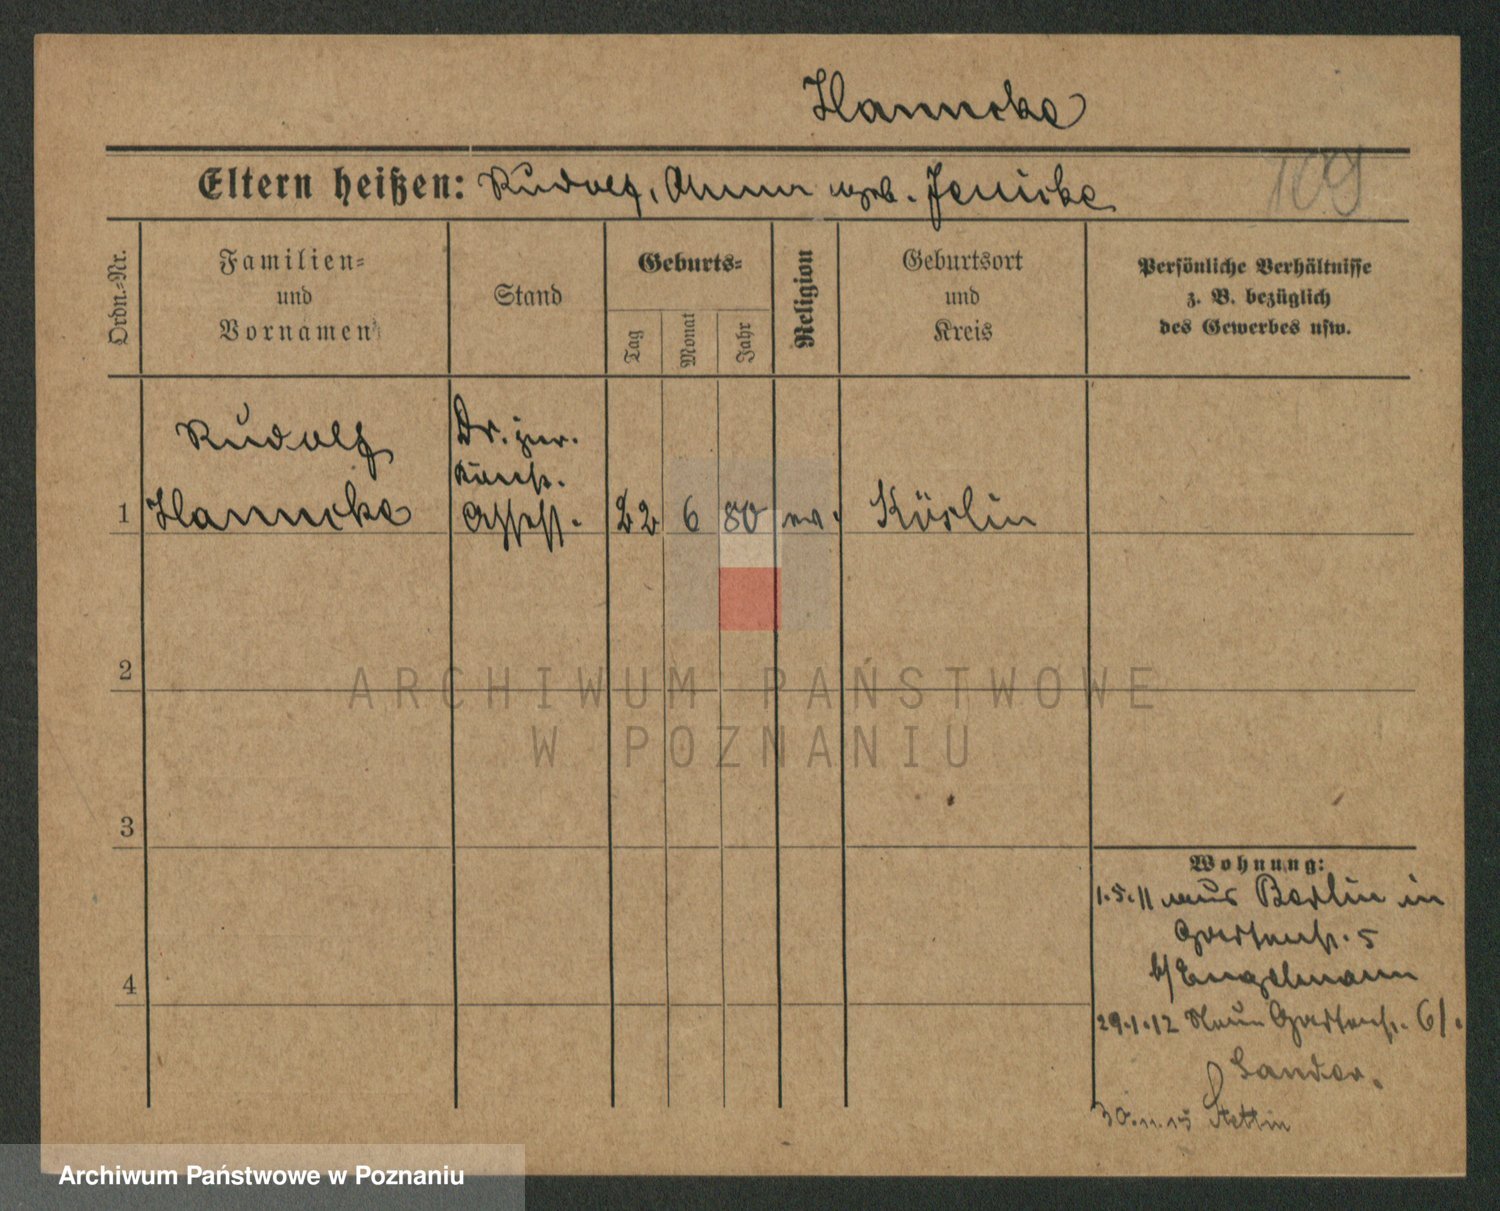 Hanncke
109
Eltern heißen: Rudolf, Anna geb. Jenicke
Ordn.-Nr.
Familien-
und
Vornamen
Stand
Geburts-
Tag
Monat
Jahr
Religion
Geburtsort
und
Kreis
Persönliche Verhältnisse
z. B. bezüglich
des Gewerbes usw.
Rudolf
Dr. jur.
1 Hanncke Assess. 22 6 80 ev. Köslin
2
ARCHIWUM PAŃSTWOWE
W POZNANIU
3
Wohnung:
1.5.11 aus Berlin in
Gartenstr. 5
b/ Engelmann
4
29.1.12 Neue Gartenstr. 61.
Sander.
30.11.15 Stettin
Archiwum Państwowe w Poznaniu